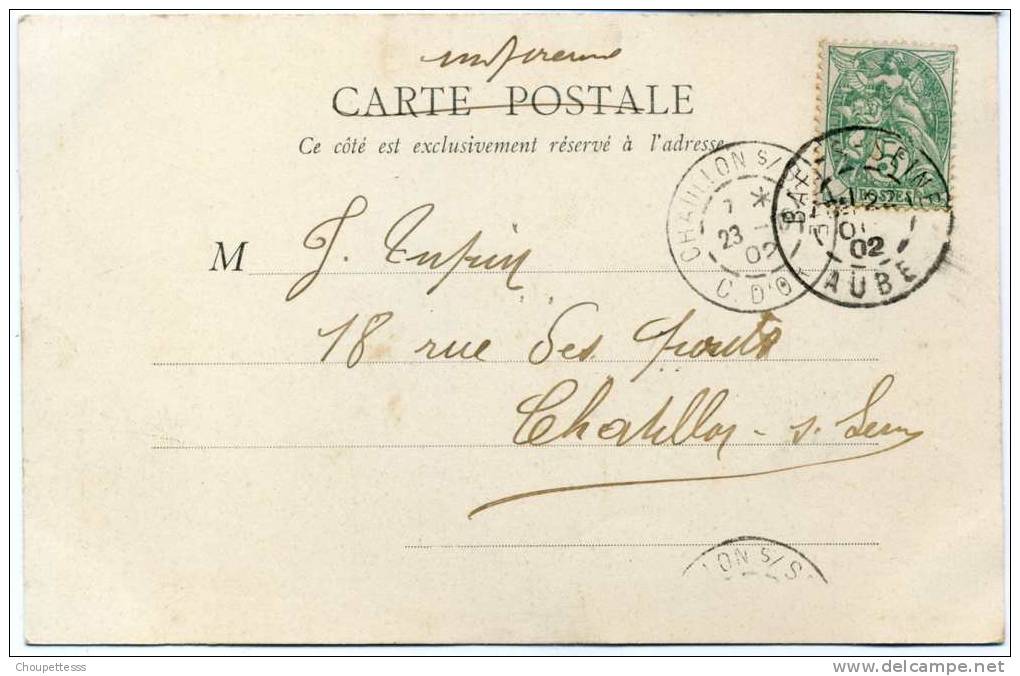 CARTE POSTALE
Ce côté est exclusivement réservé à l'adresse
M J.
18 rue des Ponts
Chatillon - s. Seine
CHATILLON S/
1 *
23 -1
02
C. D'OR
BAR-S-SEINE
02
AUBE
POSTES
LLON S/S
Choupettesss
www.delcampe.net